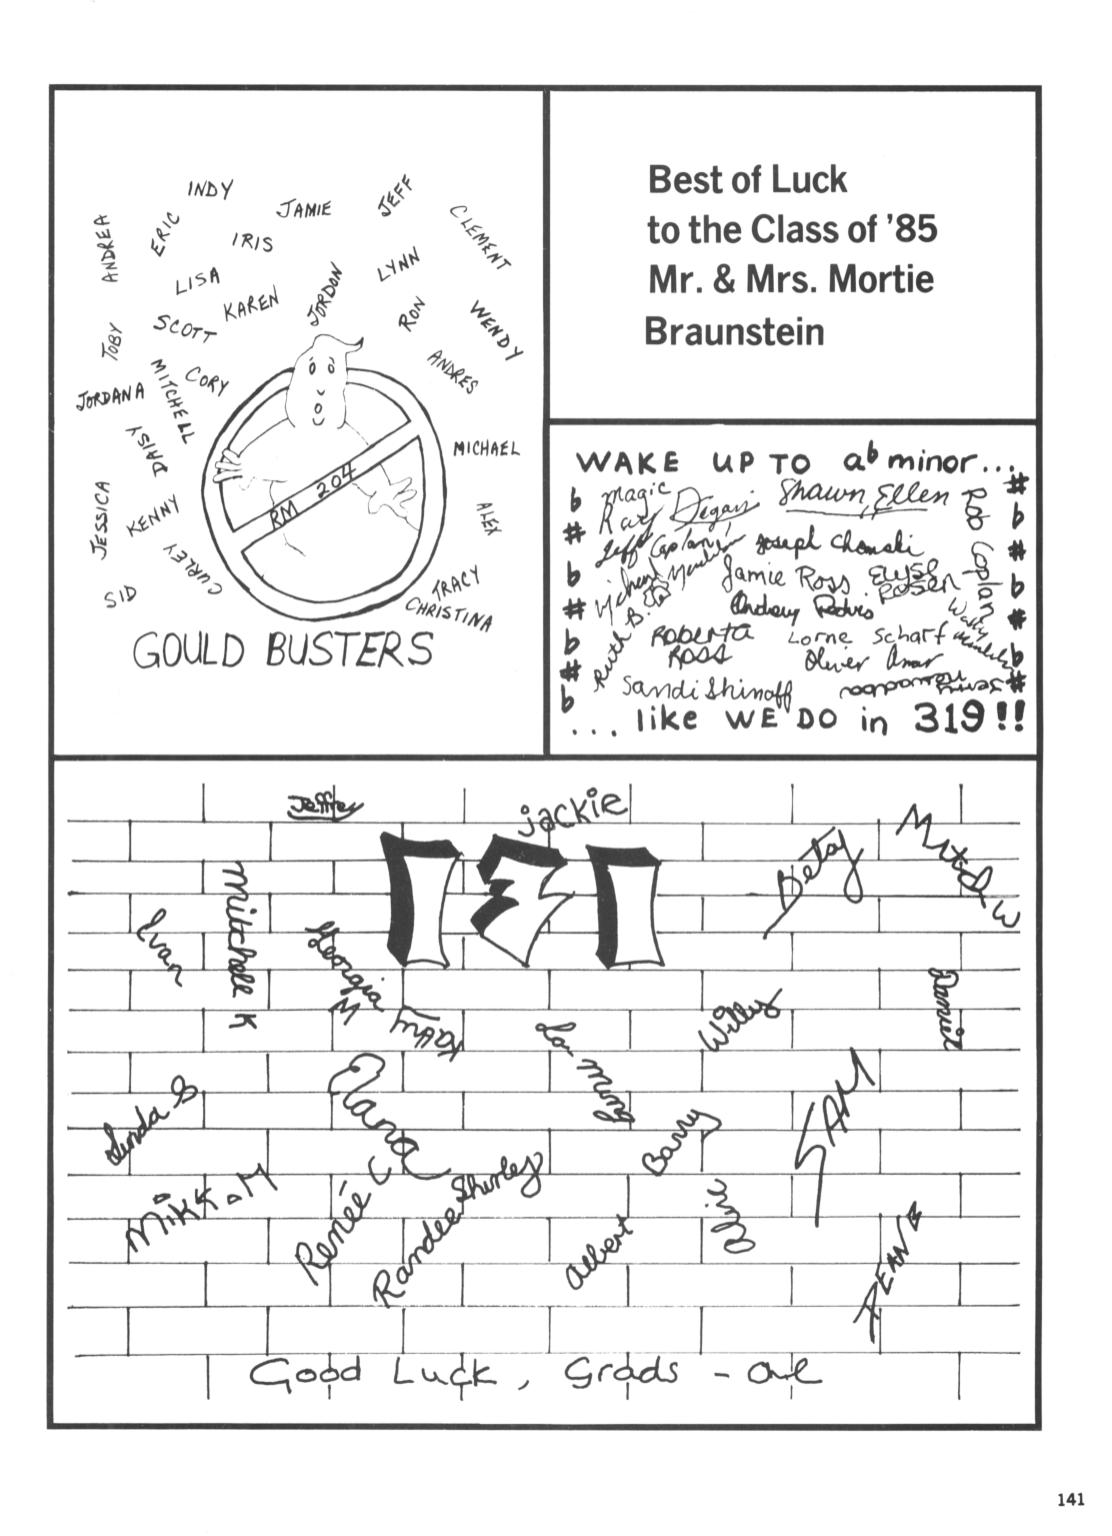 INDY
JAMIE
JEFF
CLEMENT
ANDREA
ERIC
IRIS
LYNN
LISA
KAREN
JORDON
RON
WENDY
TOBY
SCOTT
ANDRES
JORDANA
MITCHELL
CORY
DAISY
MICHAEL
RM 204
JESSICA
KENNY
ALEX
CURLEY
SID
TRACY
CHRISTINA
GOULD BUSTERS
Best of Luck
to the Class of '85
Mr. & Mrs. Mortie
Braunstein
WAKE UP TO a♭ minor...
magic
Shawn, Ellen
Rob Coplan
Jeff Caplan
Joseph
Michael
Jamie Ross
Elyse Rosen
Ruth B.
Roberta Ross
Lorne Scharf
Wally
Oliver
Sandi Shinoff
... like WE DO in 319!!
Jeffrey
jackie
Betsy
Mitch W
Ivan
Mitchell K
Georgia M
Willy
Daniel
Elana
Linda S
Barry
SAM
Renée C
Randee
Shirley
Albert
Good Luck, Grads -
141